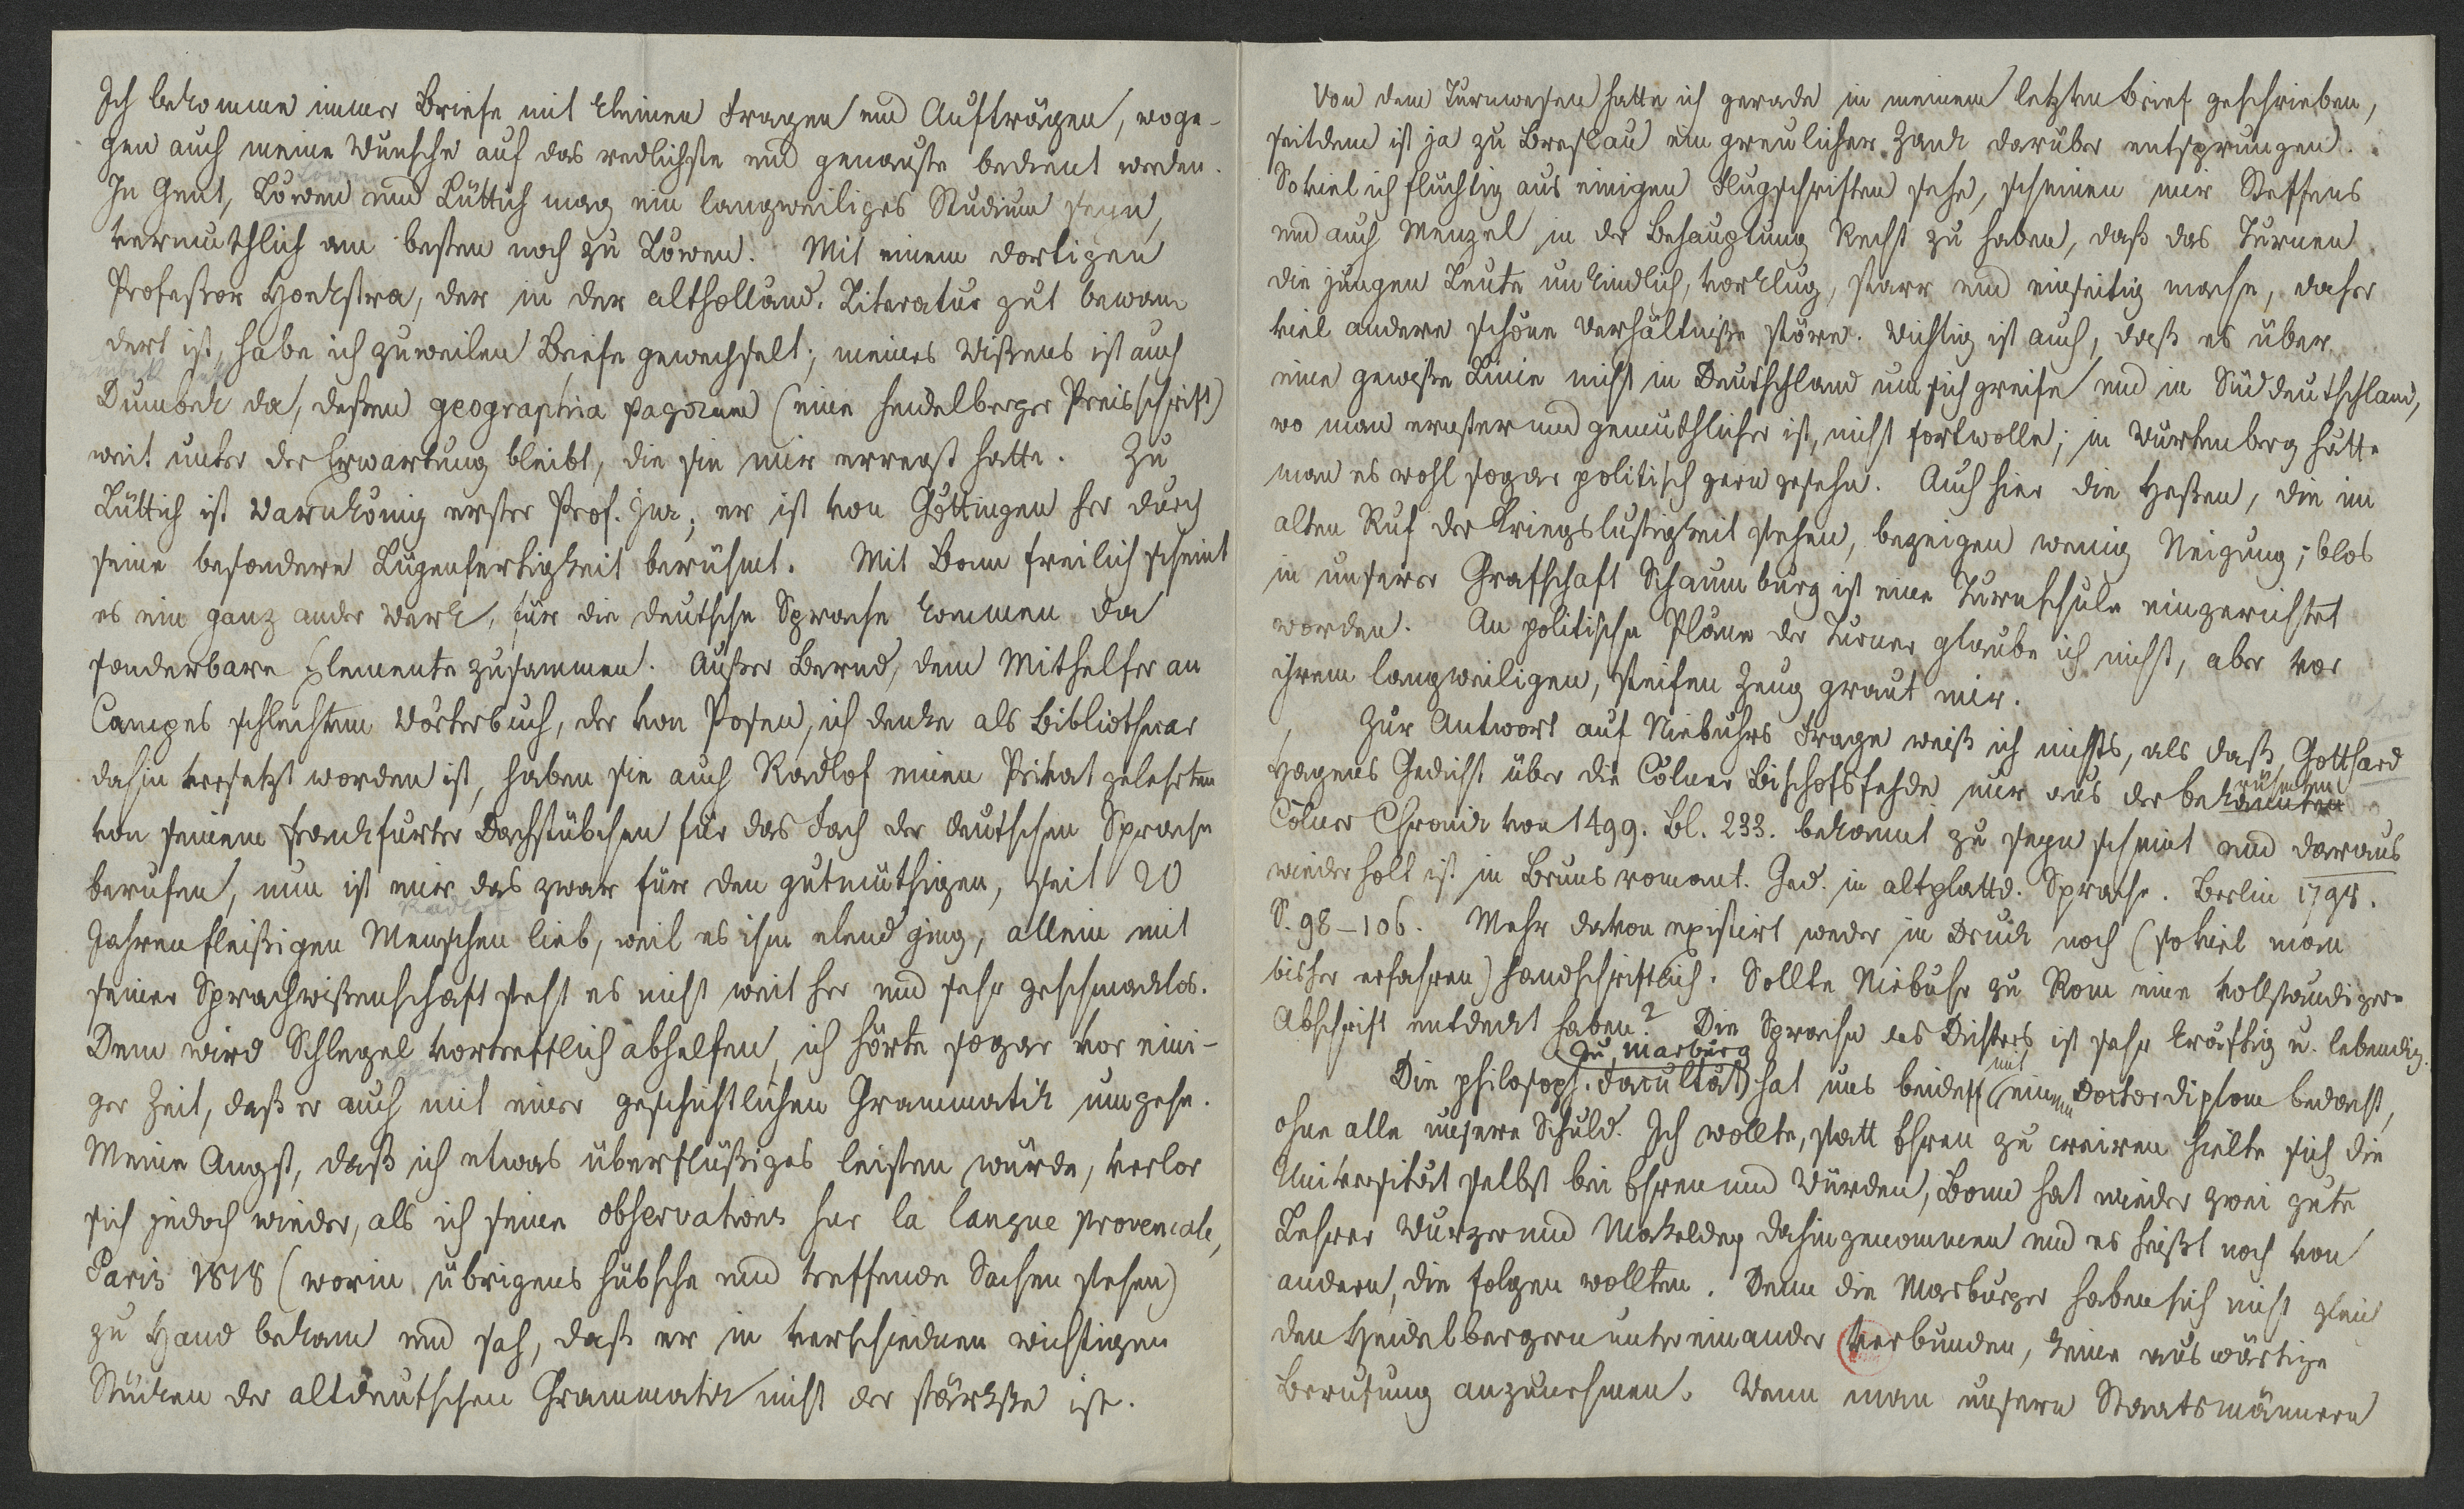 Ich bekomme immer Briefe mit kleinen Fragen und Aufträgen, woge-
gen auch meine Wünsche auf das redlichste und genauste bedient werden.
In Gent, Löwen und Lüttich mag ein langweiliges Studium seyn,
vermuthlich am besten noch zu Löwen. Mit einem dortigen
Professor Hoekstra, der in der altholländ. Literatur gut bewan
dert ist, habe ich zuweilen Briefe gewechselt; meines Wißens ist auch
Dumbek da, deßen geographia pagorum (eine heidelberger Preisschrift)
weit unter der Erwartung bleibt, die sie mir erregt hatte. Zu
Lüttich ist Warnkönig erster Prof. jur, er ist von Göttingen her durch
seine besondere Lügenfertigkeit berühmt. Mit Bonn freilich scheint
es ein ganz ander Werk, für die deutsche Sprache kommen da
sonderbare Elemente zusammen. Außer Bernd, dem Mithelfer an
Campes schlechtem Wörterbuch, der von Posen, ich denke als Bibliothecar
dahin versetzt worden ist, haben sie auch Radlof einen Privatgelehrten
von seinem frankfurter Dachstübchen für das Fach der deutschen Sprache
berufen, nun ist mir das zwar für den gutmüthigen, seit 20
Jahren fleißigen Menschen lieb, weil es ihm elend ging, allein mit
seiner Sprachwißenschaft steht es nicht weit her und sehr geschmacklos.
Dem wird Schlegel vortrefflich abhelfen, ich hörte sogar vor eini-
ger Zeit, daß er auch mit einer geschichtlichen Grammatik umgehe.
Meine Angst, daß ich etwas überflüßiges leisten würde, verlor
sich jedoch wieder, als ich seine observations sur la langue provencale,
Paris 1818 (worin übrigens hübsche und treffende Sachen stehen)
zu Hand bekam und sah, daß er in verschiednen wichtigen
Stücken der altdeutschen Grammatik nicht der stärkste ist.
Von dem Turnwesen hatte ich gerade in meinem letzten Brief geschrieben,
seitdem ist ja zu Breslau ein greulicher Zank darüber entsprungen.
Soviel ich flüchtig aus einigen Flugschriften sehe, scheinen mir Steffens
und auch Menzel in der Behauptung Recht zu haben, daß das Turnen
die jungen Leute unkindlich, vorklug, starr und einseitig mache, daher
viel andere schöne Verhältniße störe. Wichtig ist auch, daß es über
eine gewiße Linie nicht in Deutschland um sich greife und in Süddeutschland,
wo man ernster und gemüthlicher ist, nicht fortwolle; in Würtenberg hätte
man es wohl sogar politisch gern gesehn. Auch hier die Heßen, die im
alten Ruf der Kriegslustigkeit stehen, bezeigen wenig Neigung; blos
in unserer Grafschaft Schaumburg ist eine Turnschule eingerichtet
worden. An politische Pläne der Turner glaube ich nicht, aber vor
ihrem langweiligen, steifen Zeug graut mir.
Zur Antwort auf Niebuhrs Frage weiß ich nichts, als daß Gotthard
Hagens Gedicht über die Cölner Bischofsfehde nur aus der bekannten
Cölner Chronik von 1499. Bl. 233. bekannt zu seyn scheint und daraus
wiederholt ist in Bruns romant. Ged. in altplattd. Sprache. Berlin 1798.
S. 98-106. Mehr davon existirt weder in Druck noch (soviel man
bisher erfahren) handschriftlich. Sollte Niebuhr zu Rom eine vollständigere
Abschrift entdeckt haben? Die Sprache des Dichters ist sehr kräftig u. lebendig.
Die philosoph. Facultät zu Marburg hat uns beide mit einem Doctordiplom bedacht,
ohne alle unsere Schuld. Ich wollte, statt Ehren zu creiren hielte sich die
Universität selbst bei Ehren und Würden, Bonn hat wieder zwei gute
Lehrer Wurzer und Makeldey dahingenommen und es heißt noch von
andern, die folgen wollten. Denn die Marburger haben sich nicht gleich
den Heidelbergern untereinander verbunden, keine auswärtige
Berufung anzunehmen. Wenn man unsern Staatsmännern